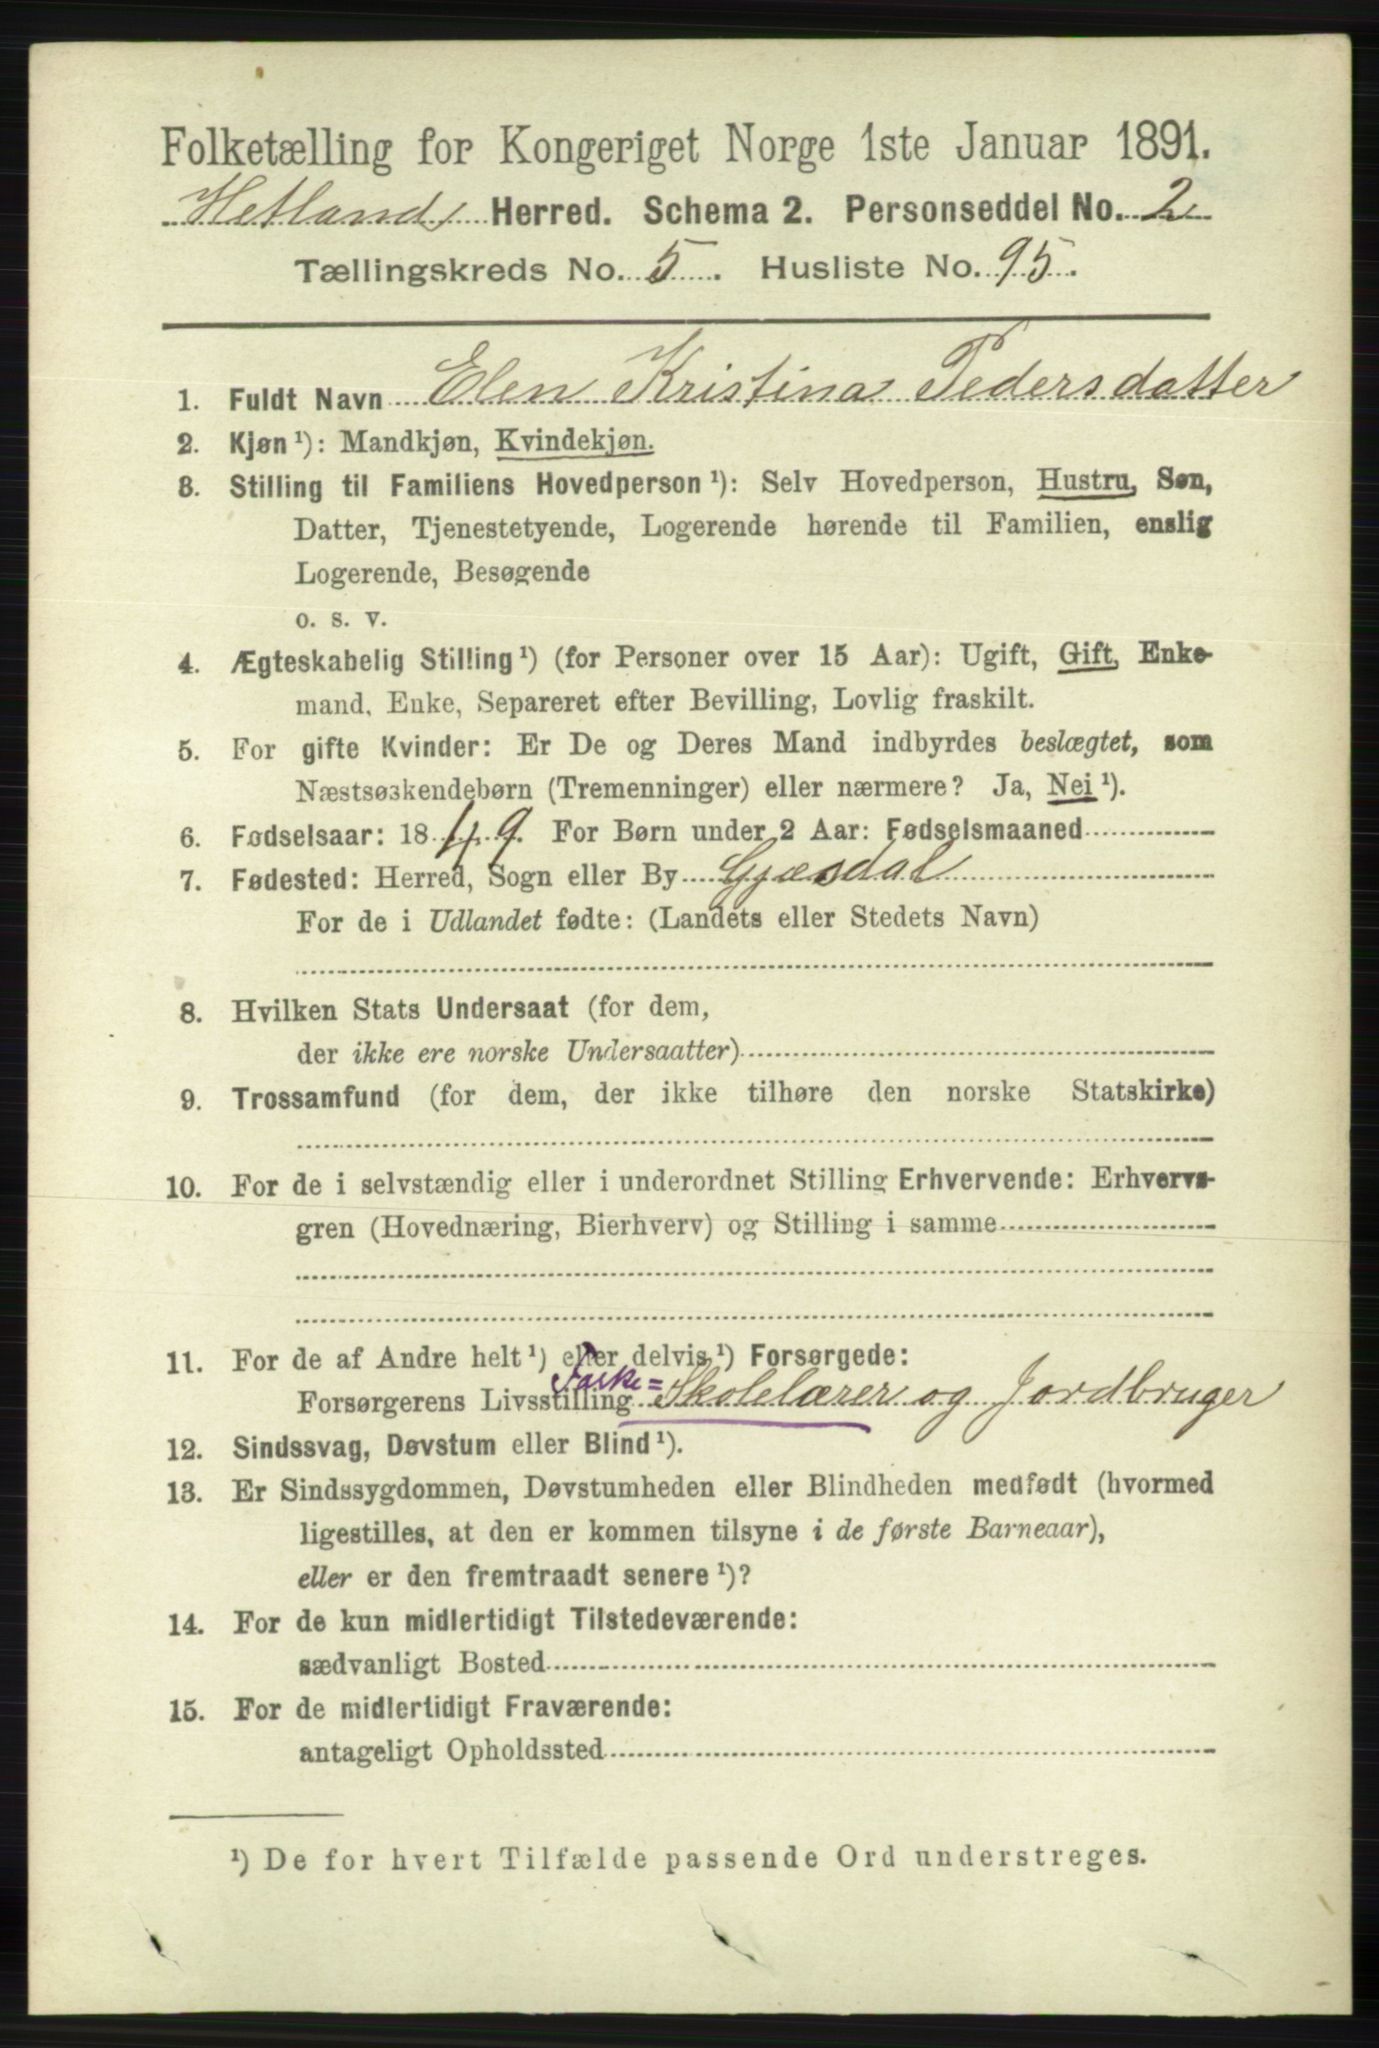 Folketælling for Kongeriget Norge 1ste Januar 1891.
Hetlands Herred. Schema 2. Personseddel No. 2
Tællingskreds No. 5. Husliste No. 95.
1. Fuldt Navn Elen Kristina Pedersdatter
2. Kjøn ¹): Mandkjøn, Kvindekjøn.
3. Stilling til Familiens Hovedperson ¹): Selv Hovedperson, Hustru, Søn,
Datter, Tjenestetyende, Logerende hørende til Familien, enslig
Logerende, Besøgende
o. s. v.
4. Ægteskabelig Stilling ¹) (for Personer over 15 Aar): Ugift, Gift, Enke-
mand, Enke, Separeret efter Bevilling, Lovlig fraskilt.
5. For gifte Kvinder: Er De og Deres Mand indbyrdes beslægtet, som
Næstsøskendebørn (Tremenninger) eller nærmere? Ja, Nei ¹).
6. Fødselsaar: 1849. For Børn under 2 Aar: Fødselsmaaned
7. Fødested: Herred, Sogn eller By Gjæsdal
For de i Udlandet fødte: (Landets eller Stedets Navn)
8. Hvilken Stats Undersaat (for dem,
der ikke ere norske Undersaatter)
9. Trossamfund (for dem, der ikke tilhøre den norske Statskirke)
10. For de i selvstændig eller i underordnet Stilling Erhvervende: Erhvervs-
gren (Hovednæring, Bierhverv) og Stilling i samme
11. For de af Andre helt ¹) eller delvis ¹) Forsørgede:
Forsørgerens Livsstilling Folke= Skolelærer og Jordbruger
12. Sindssvag, Døvstum eller Blind ¹).
13. Er Sindssygdommen, Døvstumheden eller Blindheden medfødt (hvormed
ligestilles, at den er kommen tilsyne i de første Barneaar),
eller er den fremtraadt senere ¹)?
14. For de kun midlertidigt Tilstedeværende:
sædvanligt Bosted
15. For de midlertidigt Fraværende:
antageligt Opholdssted
¹) De for hvert Tilfælde passende Ord understreges.